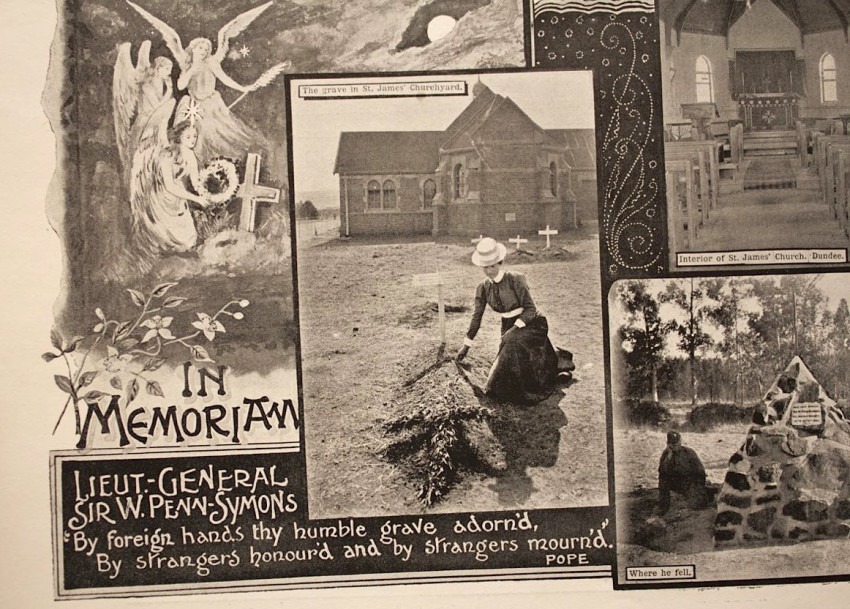 The grave in St. James' Churchyard.
Interior of St. James' Church. Dundee.
IN
MEMORIAM
LIEUT.-GENERAL
SIR W. PENN-SYMONS
"By foreign hands thy humble grave adorn'd,
By strangers honour'd and by strangers mourn'd."
POPE
Where he fell.